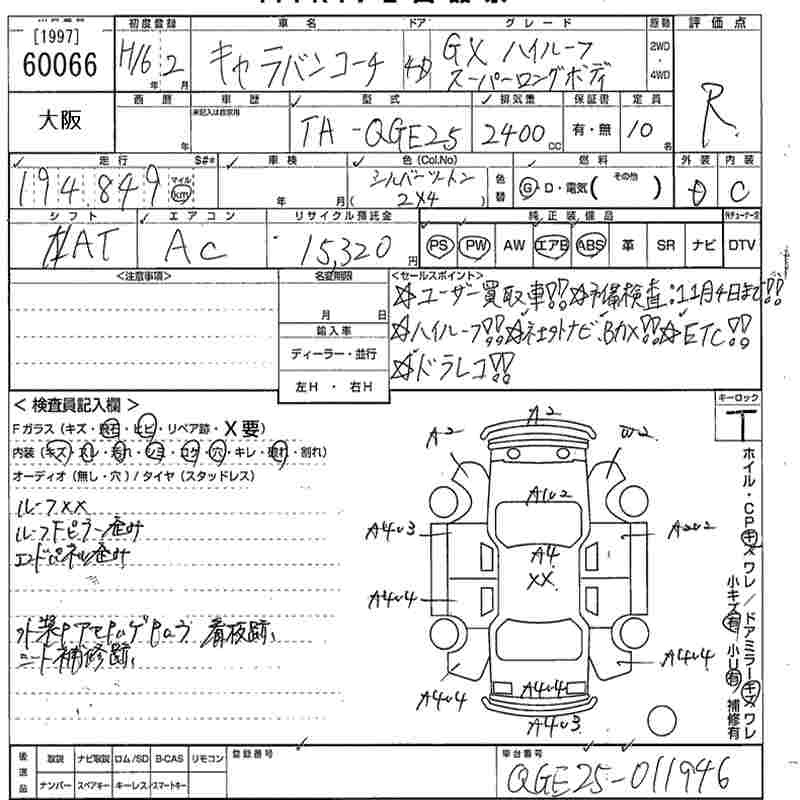 [1997]
60066
大阪
初度登録
H16 2
年 月
車名
キャラバンコーチ
ドア
4D
グレード
GX ハイルーフ
スーパーロングボディ
駆動
2WD
・
4WD
評価点
R
西暦
年
車歴
未記入は自家用
型式
TA-QGE25
排気量
2400
CC
保証書
有・無
定員
10
名
走行
S#*
194,849
マイル
km
車検
年 月
色(Col.No)
シルバーツートン
( 2X4 )
色替
燃料
G・D・電気( その他 )
外装
内装
C
シフト
AT
エアコン
AC
リサイクル預託金
15,320
円
純正装備品
PS PW AW エアB ABS 革 SR ナビ DTV
<注意事項>
名変期限
月 日
輸入車
ディーラー・並行
左H ・ 右H
<セールスポイント>
☆ユーザー買取車!!☆予備検査:11月4日まで!!
☆ハイルーフ!!☆社外ナビ.Bカメ!!☆ETC!!
☆ドラレコ!!
キーロック
T
<検査員記入欄>
Fガラス(キズ・飛石・ヒビ・リペア跡・X要)
内装(キズ・スレ・汚れ・シミ・コゲ・穴・キレ・擦れ・割れ)
オーディオ(無し・穴)/タイヤ(スタッドレス)
ルーフXX
ルーフFピラー歪み
エンドパネル歪み
看板跡、
シート補修跡、
A2
A2
W2
A1U2
A4U3
A2U2
A4
XX
A4U4
A4U4
A4U4
A4U4
A4U3
ホイル・CPキズワレ/ドアミラーキズワレ
小キズ有 小U有 補修有
後送品
取説 ナビ取説 ロム/SD B-CAS リモコン
ナンバー スペアキー キーレス/スマートキー
登録番号
車台番号
QGE25-011946